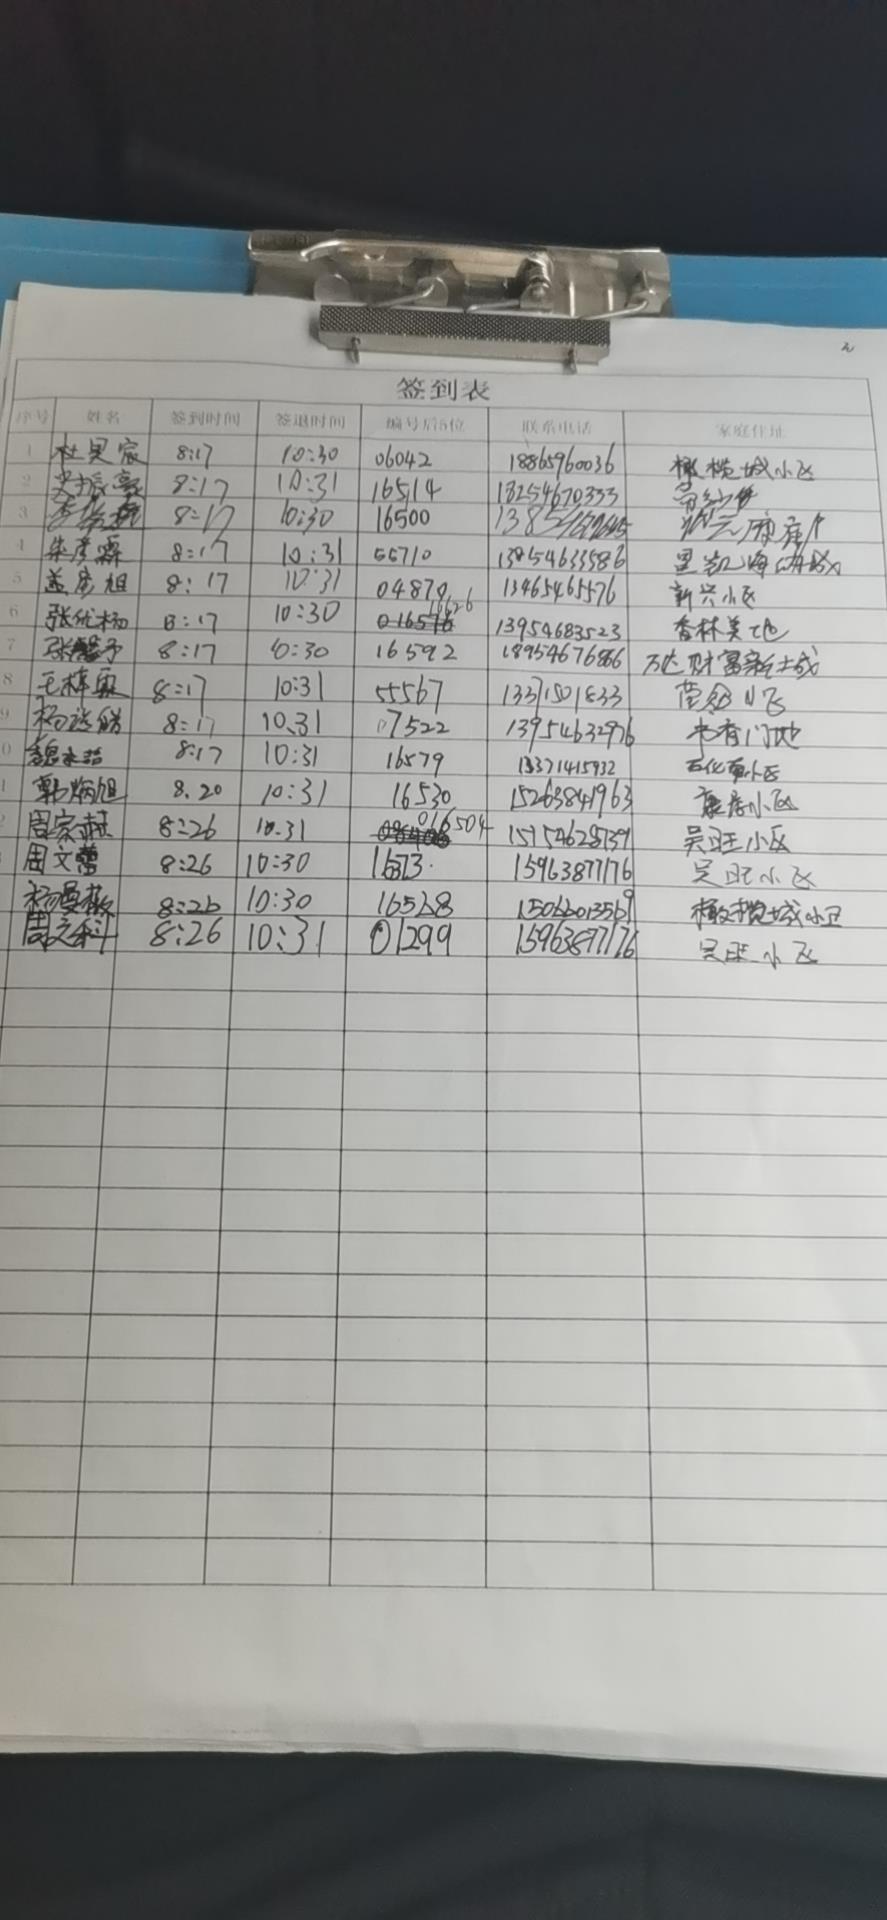 2
签到表
序号 姓名 签到时间 签退时间 编号后5位 联系电话 家庭住址
1 杜昊宸 8:17 10:30 06042 18865960036 橄榄城小区
2 振豪 8:17 10:31 16514 18254670333
3 8:17 10:30 16500
4 朱彦霖 8:17 10:31 55710 13854633586
5 盖彦旭 8:17 10:31 04870 13465465576 新兴小区
6 张优杨 8:17 10:30 16626 13954683523 杏林美地
7 张馨予 8:17 10:30 16592 18954676866 万达财富新城
8 王梓 8:17 10:31 55567 13371501833
9 杨 8:17 10.31 07522 13954632976 书香门地
0 魏 8:17 10:31 16579 13371415932
1 郭炳旭 8.20 10:31 16530 15263841963 康居小区
2 周家赫 8:26 10.31 016504 吴旺小区
周文蕾 8:26 10:30 1673. 15963877176 吴旺小区
杨曼 8:26 10:30 16568 橄榄城小区
周文科 8:26 10:31 01299 15963877176 吴旺小区